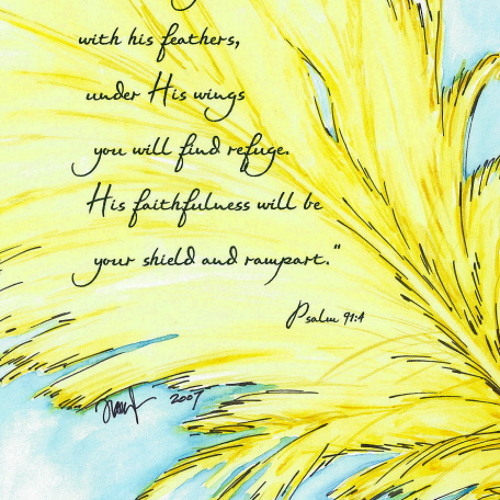 with his feathers,
under His wings
you will find refuge.
His faithfulness will be
your shield and rampart."
Psalm 91:4
2007